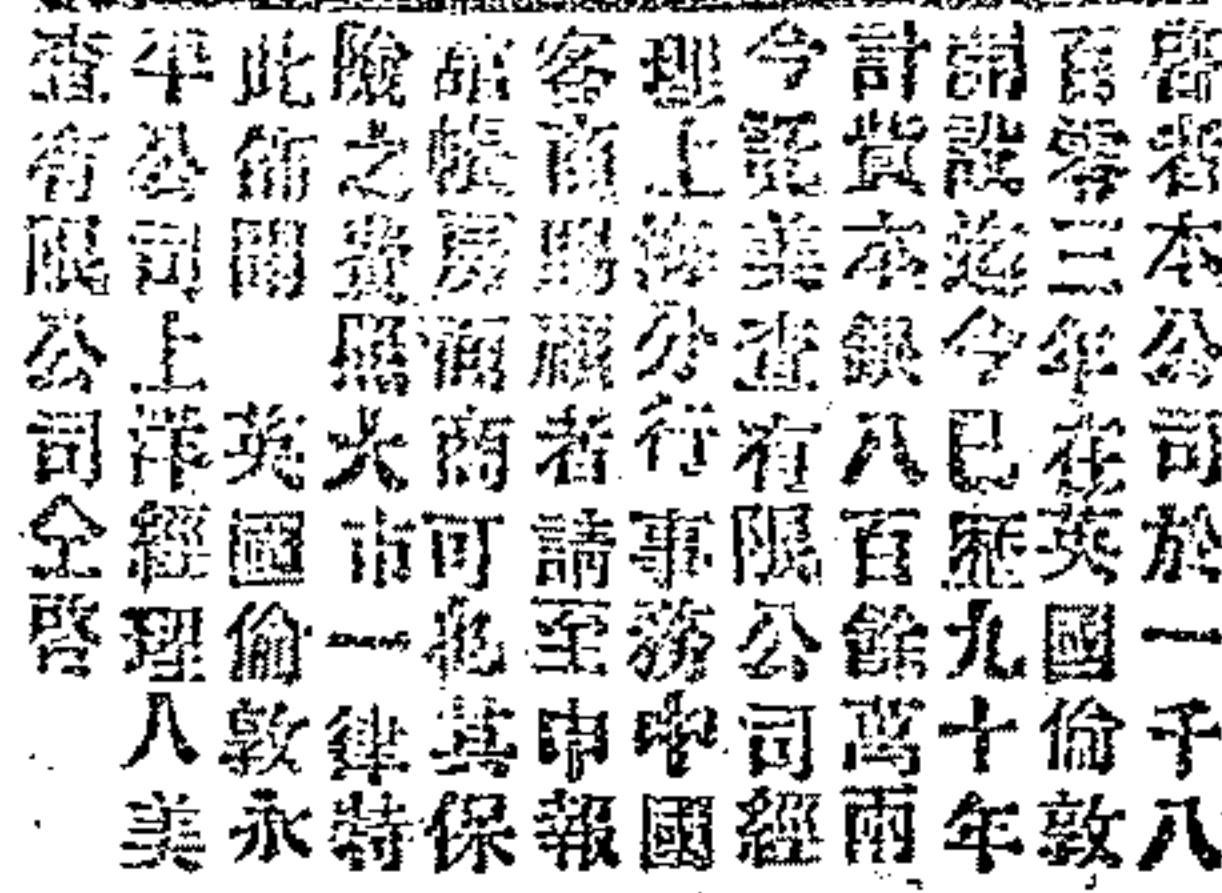 啓者本公司於一千八
百零三年在英國倫敦
開設迄今已歷九十年
計貲本銀八百餘萬兩
今託美查有限公司經
理上海分行事務中國
客商賜顧者請至申報
館帳房面商可也其保
險之費照大市一律特
此佈聞　英國倫敦永
平公司上洋經理人美
查有限公司仝啓